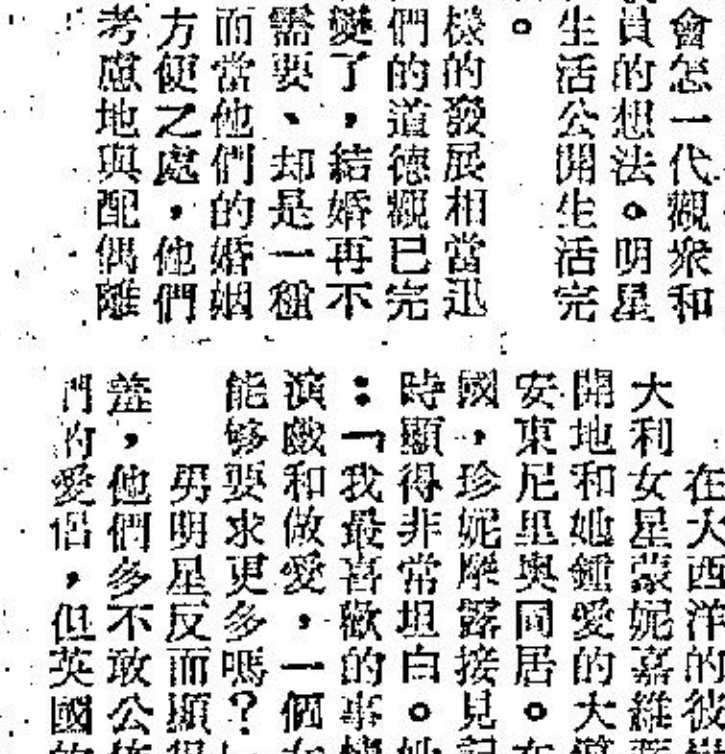 會怎一代觀衆和
員的想法。明星
生活公開生活完
。
機的發展相當迅
們的道德觀已完
變了,結婚再不
需要、却是一種
而當他們的婚姻
方便之處,他們
考慮地與配偶離
在大西洋的彼
大利女星蒙妮嘉維
開地和她鍾愛的大
安東尼里奧同居。
國,珍妮摩露接見記
時顯得非常坦白。她
:「我最喜歡的事
演戲和做愛,一個女
能够要求更多嗎?」
男明星反而顯得
羞,他們多不敢公
們的愛侶,但英國的